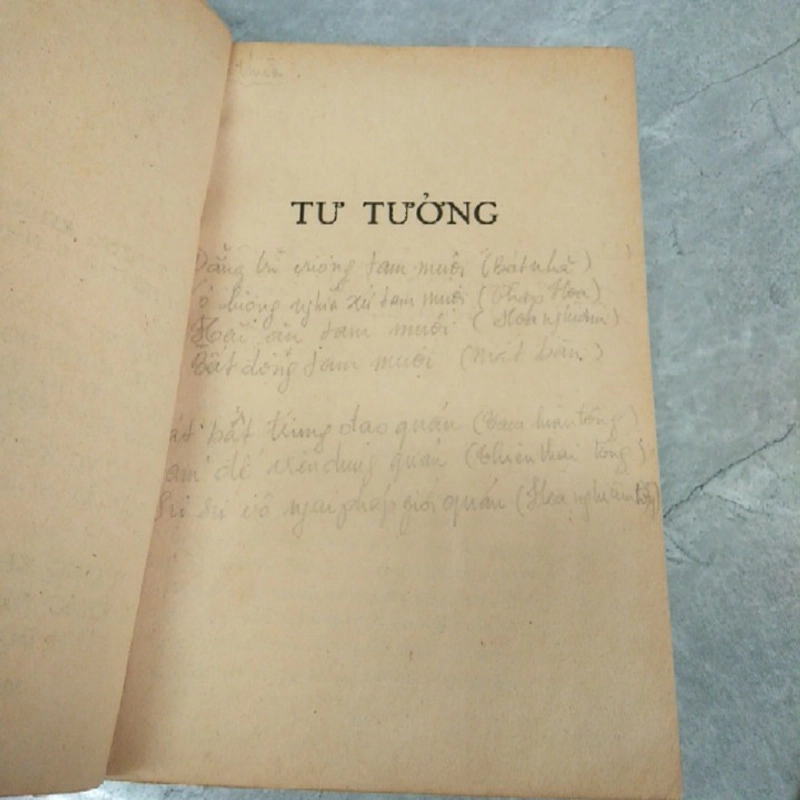 TƯ TƯỞNG
Đẳng trì vương tam muội (Bát nhã)
lượng nghĩa xứ tam muội (Pháp Hoa)
Hải ấn tam muội (Hoa nghiêm)
Bất động tam muội (Niết bàn)
bất trung đạo quán (Tam luận tông)
đế viên dung quán (Thiên thai tông)
Sự sự vô ngại pháp giới quán (Hoa nghiêm tông)